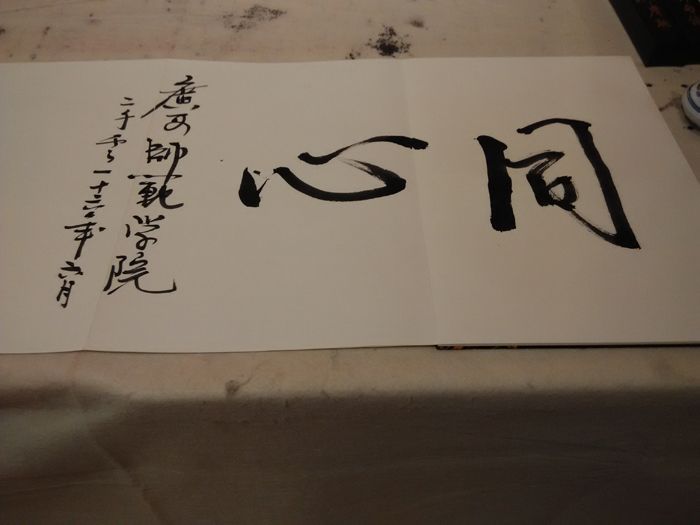 同心
廣西師範学院
二千零一十六年六月